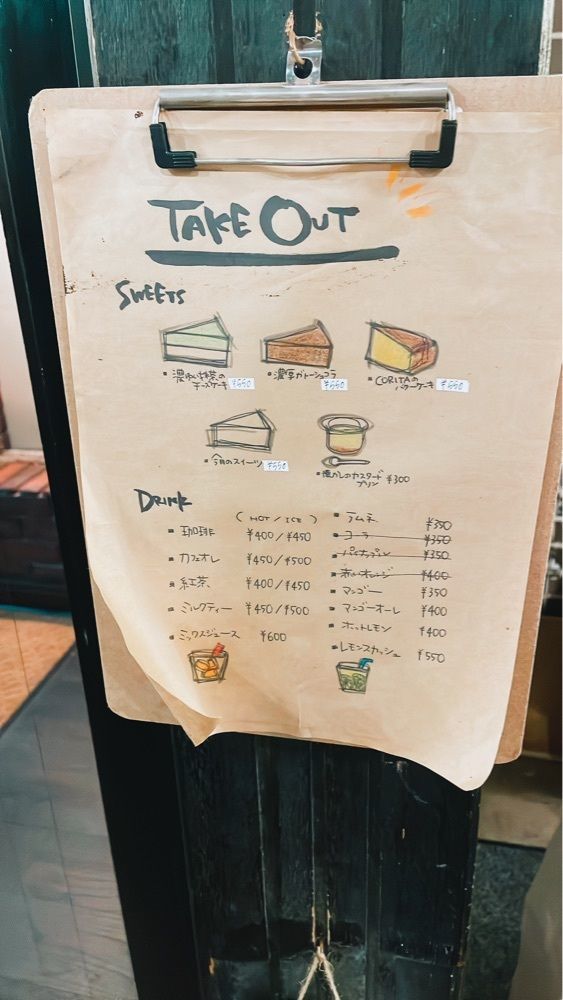 TAKE OUT
SWEETS
・濃いお抹茶の
チーズケーキ ¥550
・濃厚ガトーショコラ
¥550
・CORITAの
バターケーキ ¥550
・今月のスイーツ ¥550
・懐かしのカスタード
プリン ¥300
DRINK
(HOT / ICE)
・珈琲 ¥400/¥450
・カフェオレ ¥450/¥500
・紅茶 ¥400/¥450
・ミルクティー ¥450/¥500
・ミックスジュース ¥600
・ラムネ ¥350
・コーラ ¥350
・パイナップル ¥350
・赤いオレンジ ¥400
・マンゴー ¥350
・マンゴーオーレ ¥400
・ホットレモン ¥400
・レモンスカッシュ ¥550